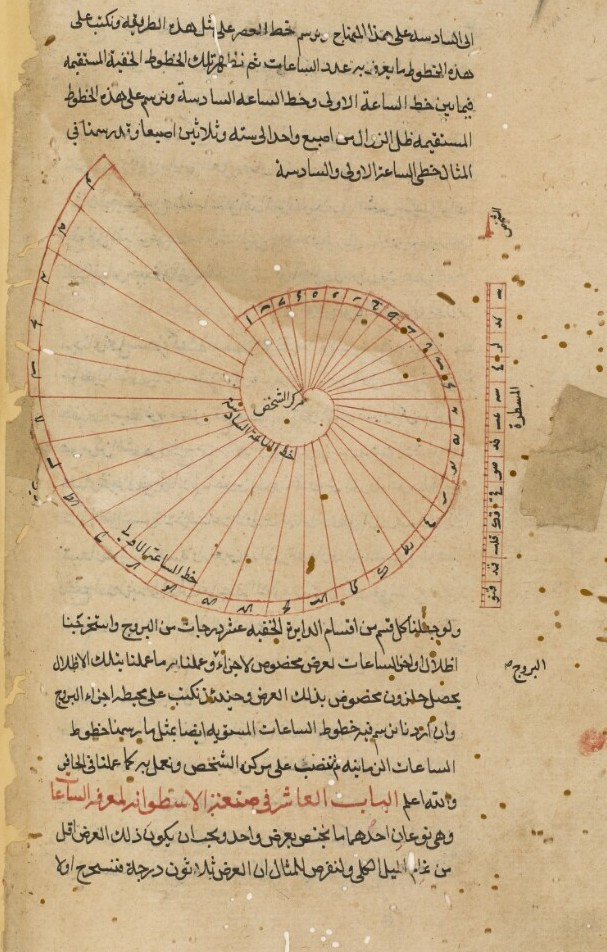 الى السادسة على هذا المنهاج ونرسم خط العصر على مثل هذه الطريقة ونكتب على
هذه الخطوط ما يعرف به عدد الساعات ثم نظهر تلك الخطوط الخفية المستقيمة
فيما بين خط الساعة الاولى وخط الساعة السادسة ونرسم على هذه الخطوط
المستقيمة ظل الزوال من اصبع واحد الى ستة وثلاثين اصبعا وقد رسمنا في
المثال خطى الساعة الاولى والسادسة
الشخص
المسطرة
مركز الشخص
خط الساعة السادسة
خط الساعة الاولى
ولو جعلنا كل قسم من اقسام الدايرة الخفية عشر درجات من البروج واستخرجنا
اظلال اواخر الساعات لعرض مخصوص لاجزاء وعملنا بر ما عملنا بتلك الاظلال
البروج
يحصل حلزون مخصوص بذلك العرض وحينئذ نكتب على محيطه اجزاء البروج
وان اردنا ان نرسم فيه خطوط الساعات المستوية ايضا بمثل ما رسمنا خطوط
الساعات الزمانية ثم ننصب على مركزه الشخص ونعمل به كما عملنا في الحافر
والله اعلم الباب العاشر في صنعة الاسطوانة لمعرفة الساعات
وهي نوعان احدهما ما يختص بعرض واحد ويجب ان يكون ذلك العرض اقل
من تمام الميل الكلى ولنفرض للمثال ان العرض ثلاثون درجة فنستخرج اولا